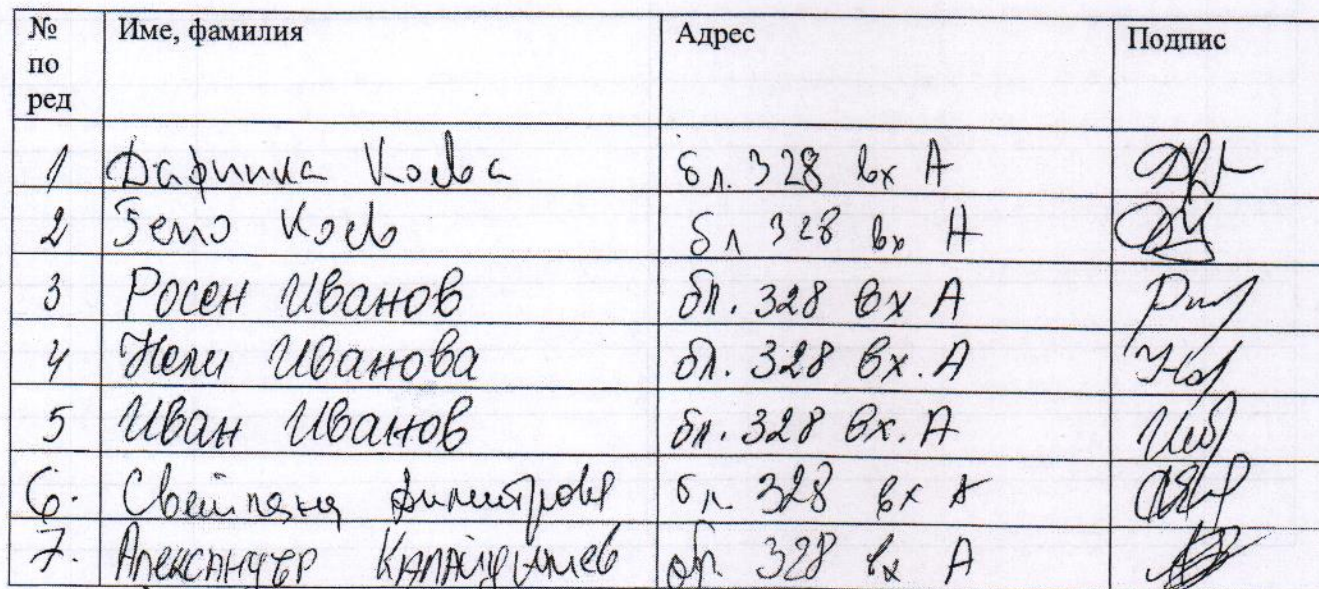 № по ред Име, фамилия Адрес Подпис
1 Дафинка Коева бл. 328 вх А
2 Коев бл 328 вх А
3 Росен Иванов бл. 328 вх А
4 Нели Иванова бл. 328 вх. А
5 Иван Иванов бл. 328 вх. А
6. Светлана Димитрова бл. 328 вх А
7. Александър бл. 328 вх А